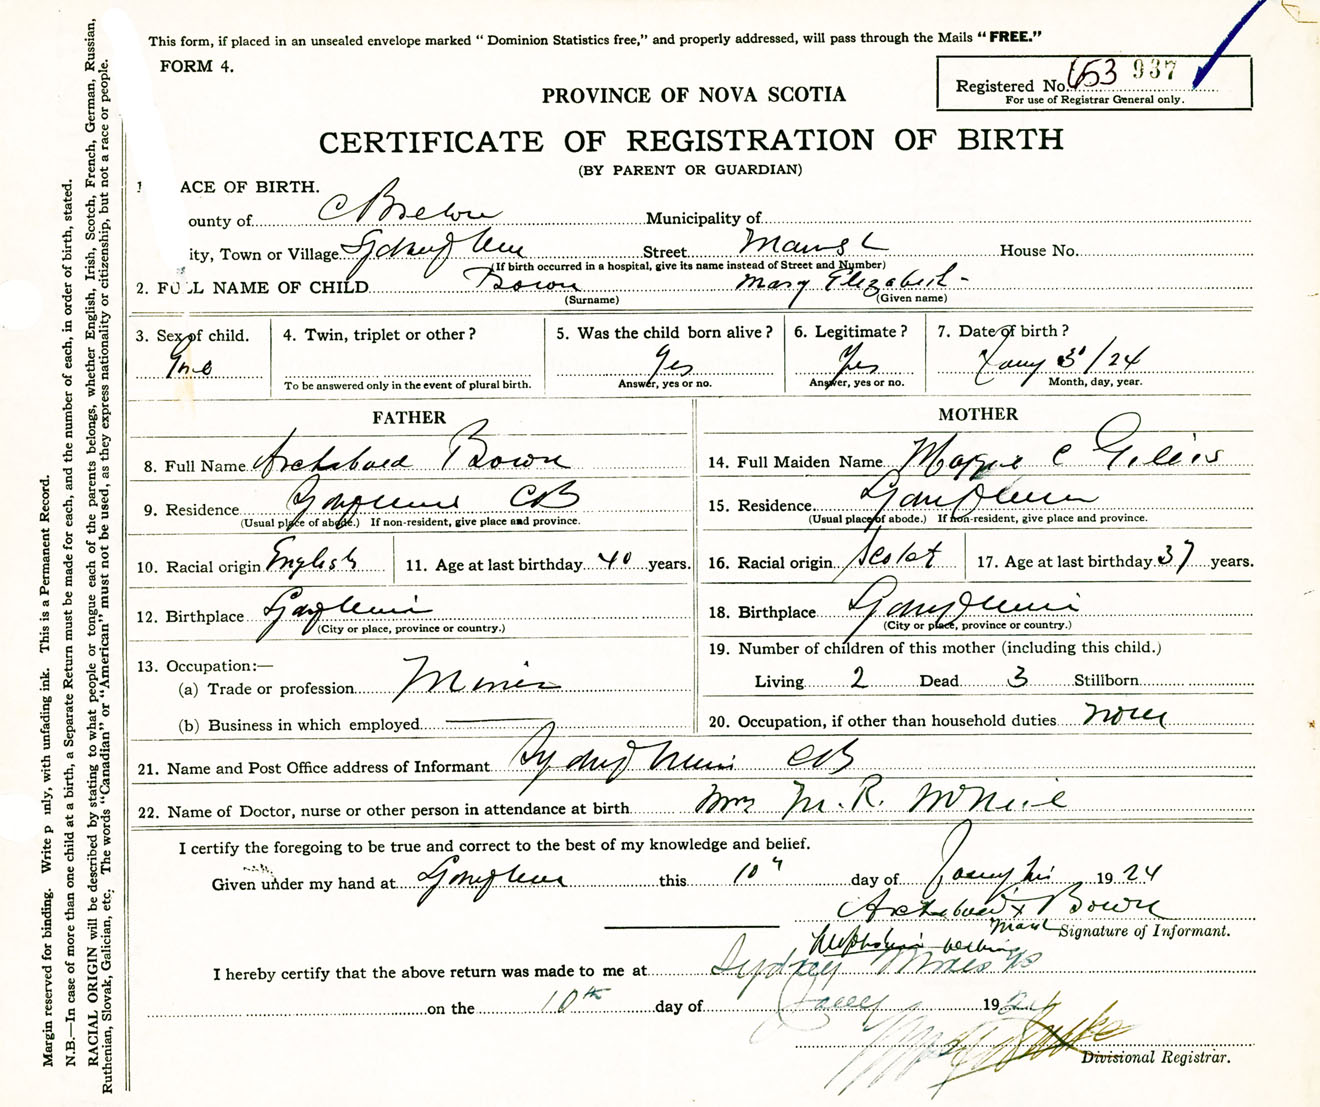 This form, if placed in an unsealed envelope marked "Dominion Statistics free," and properly addressed, will pass through the Mails "FREE."
FORM 4.
Registered No. 653 937
For use of Registrar General only.
PROVINCE OF NOVA SCOTIA
CERTIFICATE OF REGISTRATION OF BIRTH
(BY PARENT OR GUARDIAN)
1 ACE OF BIRTH.
ounty of C Breton Municipality of
ity, Town or Village Sydney Mines Street Main St House No.
(If birth occurred in a hospital, give its name instead of Street and Number)
2. FULL NAME OF CHILD Bown Mary Elizabeth
(Surname) (Given name)
3. Sex of child. 4. Twin, triplet or other? 5. Was the child born alive? 6. Legitimate? 7. Date of birth?
Yes Yes Jany 3/24
To be answered only in the event of plural birth. Answer, yes or no. Answer, yes or no. Month, day, year.
FATHER MOTHER
8. Full Name Archibald Bown 14. Full Maiden Name Maggie C Gillis
9. Residence Sydney Mines CB 15. Residence Sydney Mines
(Usual place of abode.) If non-resident, give place and province. (Usual place of abode.) If non-resident, give place and province.
10. Racial origin English 11. Age at last birthday 40 years. 16. Racial origin Scotch 17. Age at last birthday 37 years.
12. Birthplace Sydney Mines 18. Birthplace Sydney Mines
(City or place, province or country.) (City or place, province or country.)
13. Occupation:— 19. Number of children of this mother (including this child.)
(a) Trade or profession Miner Living 2 Dead 3 Stillborn
(b) Business in which employed 20. Occupation, if other than household duties None
21. Name and Post Office address of Informant Sydney Mines CB
22. Name of Doctor, nurse or other person in attendance at birth Mrs M. R. McNeil
I certify the foregoing to be true and correct to the best of my knowledge and belief.
Given under my hand at Sydney Mines this 10" day of January 1924
Archibald X Bown
mark Signature of Informant.
I hereby certify that the above return was made to me at Sydney Mines NS
on the 10th day of Jany 1924
Divisional Registrar.
Margin reserved for binding. Write p nly, with unfading ink. This is a Permanent Record.
N.B.—In case of more than one child at a birth, a Separate Return must be made for each, and the number of each, in order of birth, stated.
RACIAL ORIGIN will be described by stating to what people or tongue each of the parents belongs, whether English, Irish, Scotch, French, German, Russian,
Ruthenian, Slovak, Galician, etc. The words "Canadian" or "American" must not be used, as they express nationality or citizenship, but not a race or people.